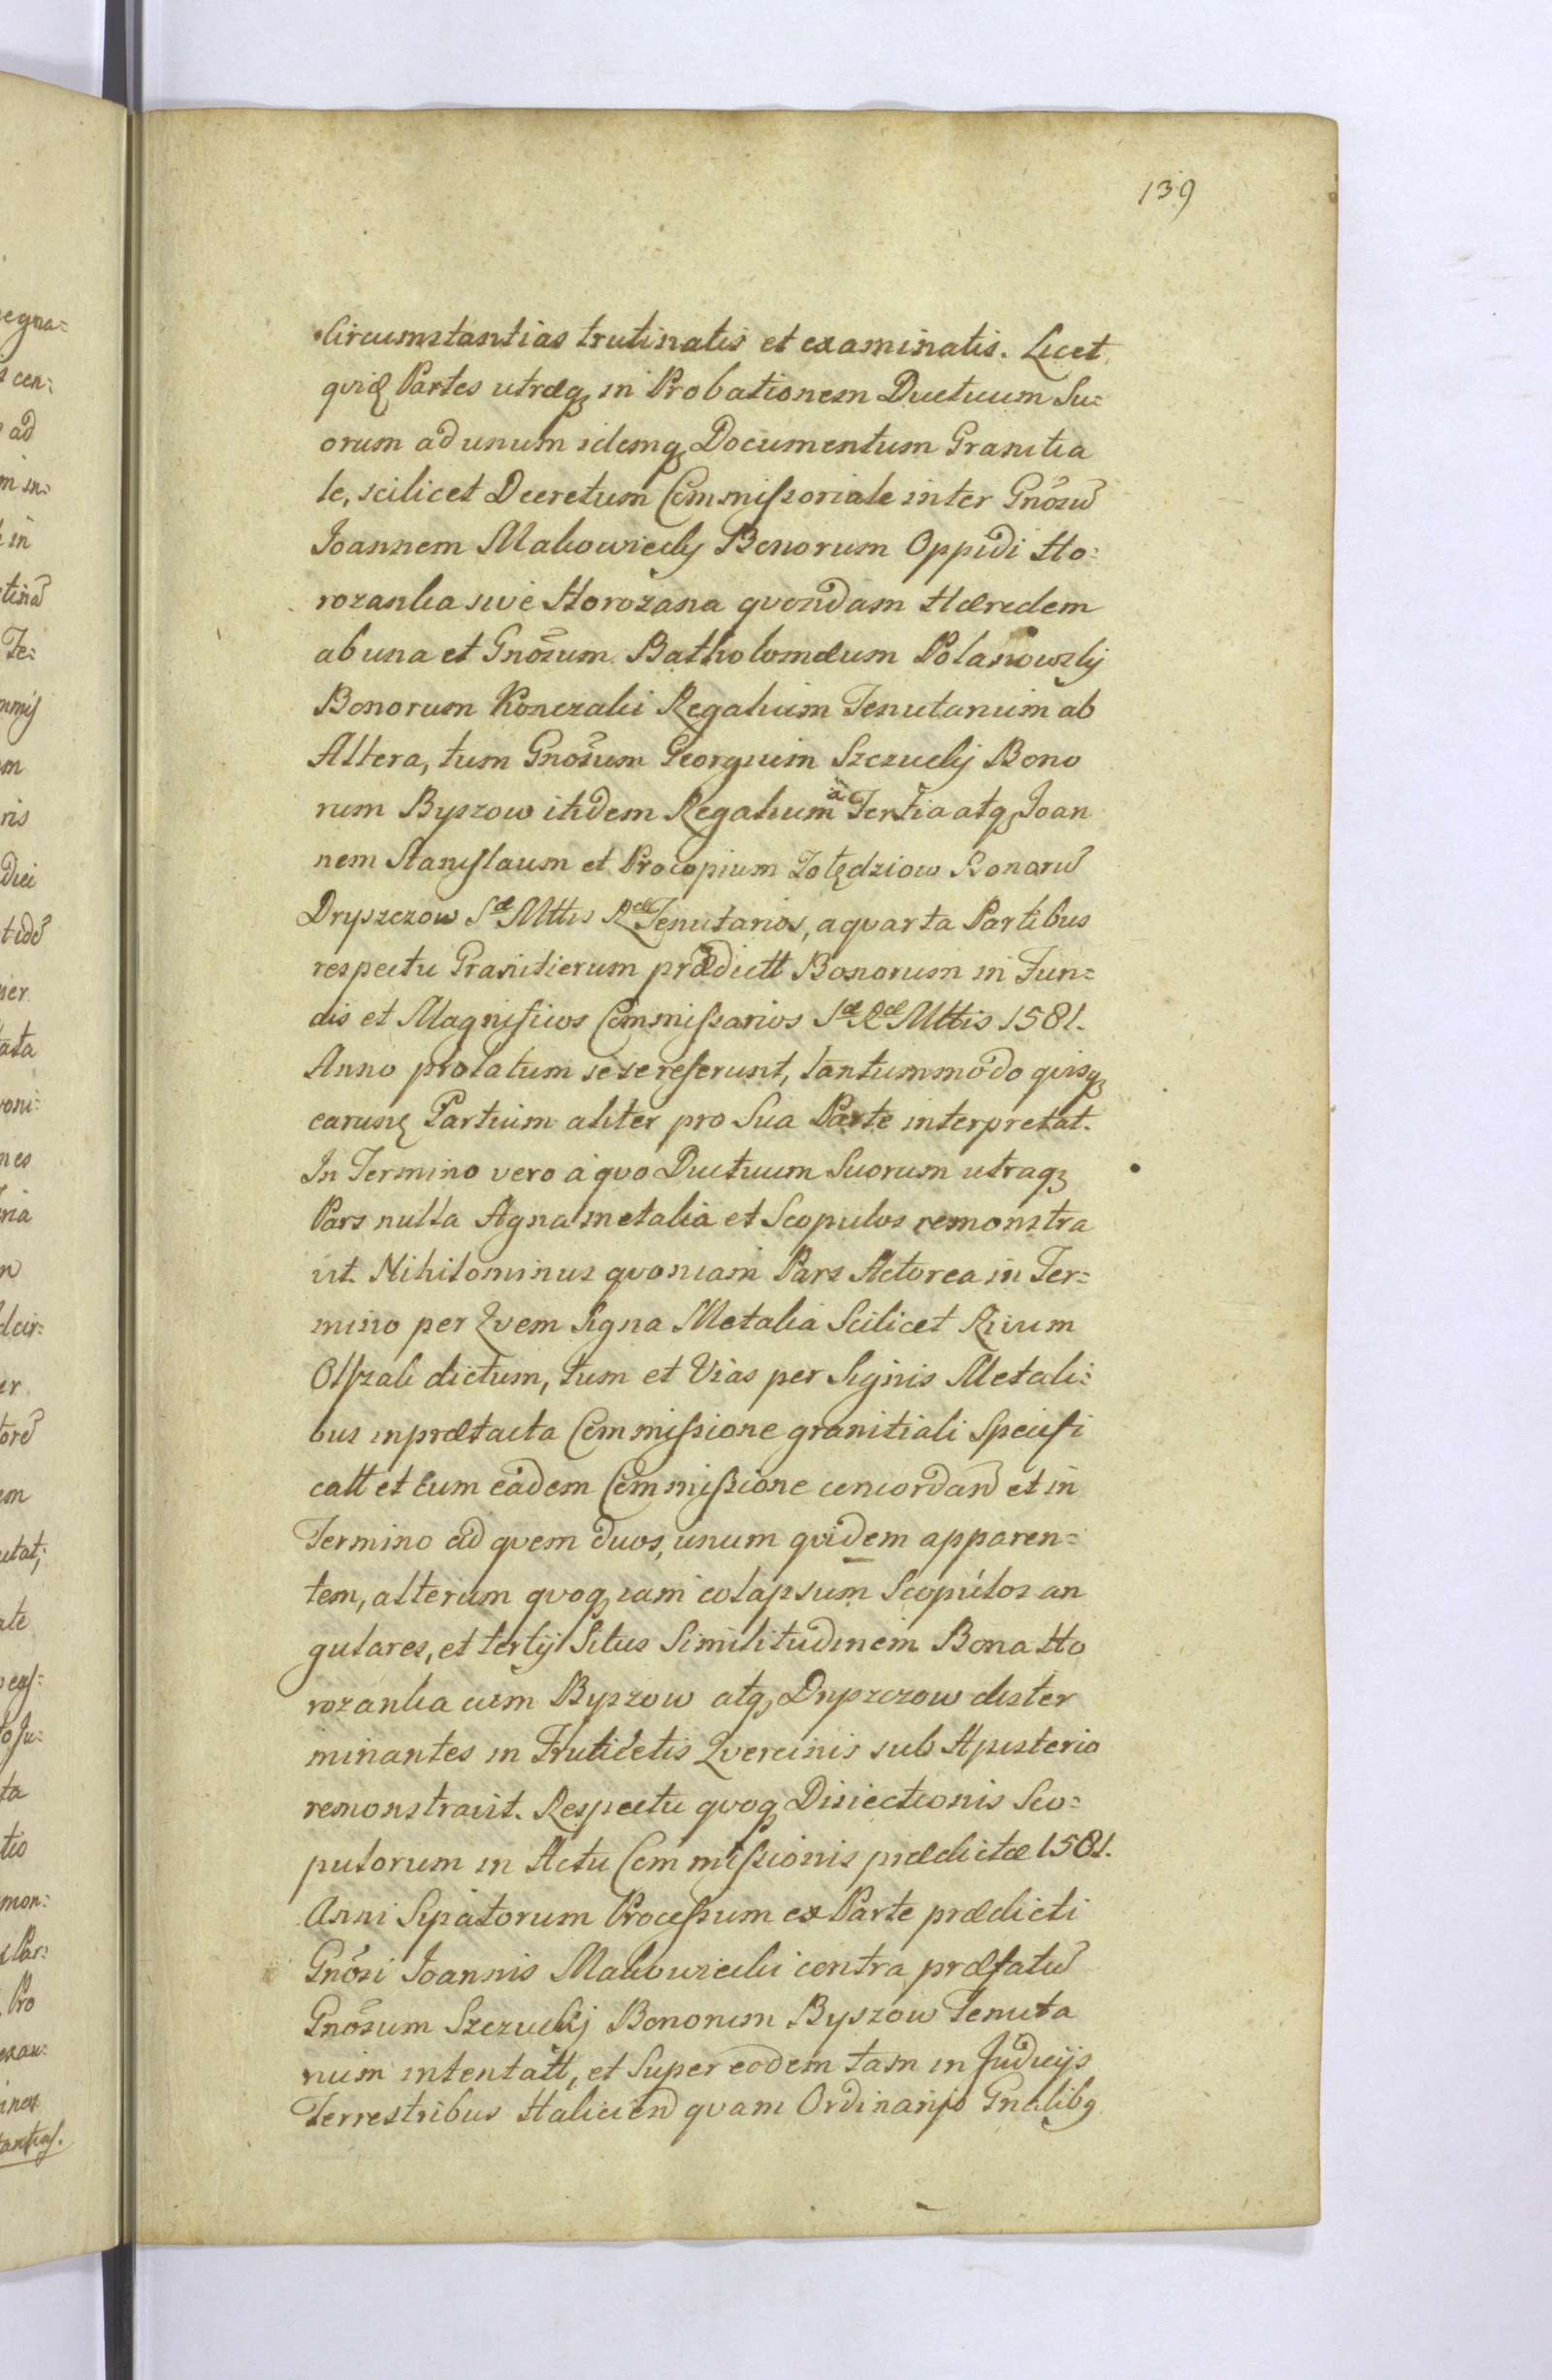 139
Circumstantias trutinatis et examinatis. Licet
quid Partes utræq in Probationem Ductuum Su=
orum ad unum idemq Documentum Granitia
le, scilicet Decretum Commissoriale inter Gnosũ
Joannem Makowiecky Bonorum Oppidi Ho=
rozanka sive Horozana qvondam Hæredem
ab una et Gnõsum Batholomæum Polanowsky
Bonorum Konczaki Regalium Tenutarium ab
Altera, tum Gnõsum Georgium Szczucky Bono
rum Byszow itidem Regalium à Tertia atq Joan
nem Stanislaum et Procopium Żołędziow Bonorũ
Dryszczow Sæ Mttis Ræ Tenutarios, a qvarta Partibus
respectu Granitierum prædictt Bonorum in Fun=
dis et Magnificos Commissarios Sæ Ræ Mttis 1581.
Anno prolatum sese referunt, tantummodo qvisq
earund Partium aliter pro Sua Parte interpretat.
In Termino vero à qvo Ductuum Suorum utraq
Pars nulla Signa metalia et Scopulos remonstra
vit. Nihilominus qvoniam Pars Actorea in Ter=
mino per Qvem Signa Metalia Scilicet Rivum
Olszaki dictum, tum et Vias per Signis Metali=
bus in prætacta Commissione granitiali Specifi
catt et cum eadem Commissione concordand et in
Termino ad qvem duos, unum qvidem apparen=
tem, alterum qvoq iam colapsum Scopulos an
gulares, et tertij Situs Similitudinem Bona Ho
rozanka cum Byszow atq Dryszczow dister
minantes in Fruticetis Qvercinis sub Apisterio
remonstravit. Respectu qvoq Disiectionis Sco=
pulorum in Actu Commissionis prædictæ 1581.
Anni Sipatorum Processum ex Parte prædicti
Gnõsi Joannis Makowiecki contra præfatũ
Gnõsum Szczucky Bonorum Byszow Tenuta
rium intentatt, et Super eodem tam in Judicijs
Terrestribus Haliciend qvam Ordinarijs Gnalibq